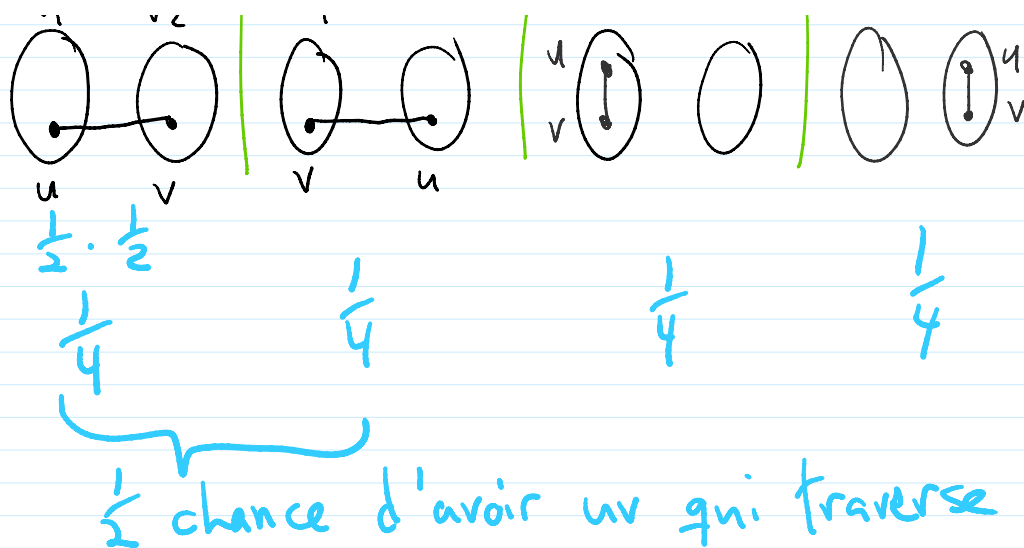 V2
u v
v u
u
v
u
v
1/2 · 1/2
1/4 1/4 1/4 1/4
1/2 chance d'avoir uv qui traverse